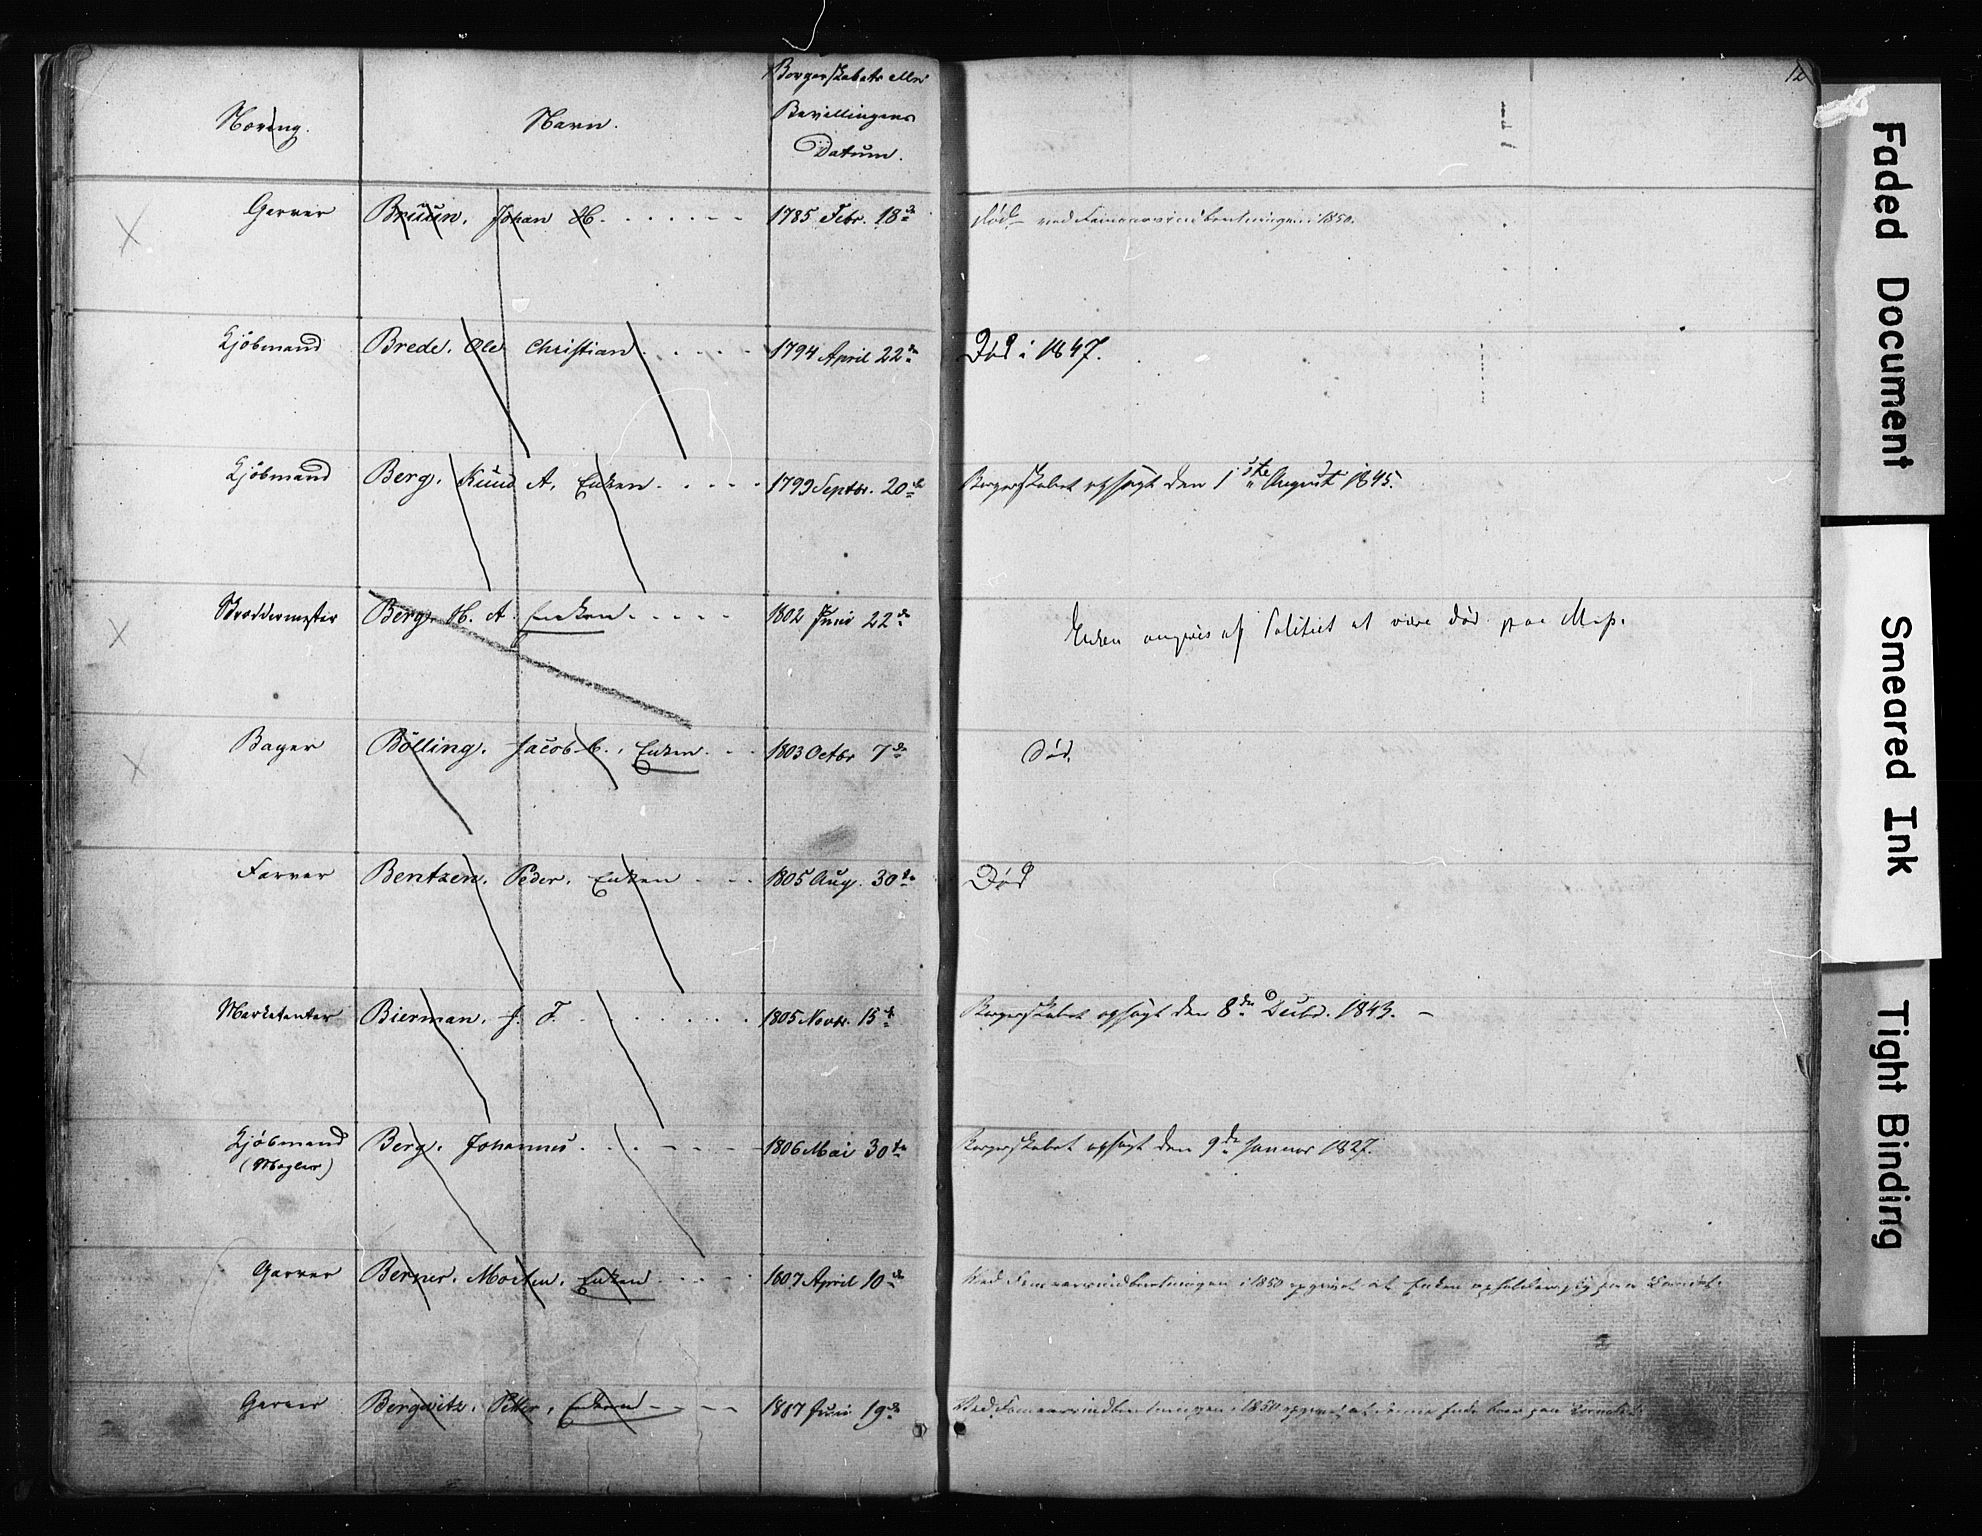 12
Næring.
Navn.
Borgerskabets eller
Bevillingens
Datum.
Garver Bruun, Johan H. 1785 Febr. 18de død ved Femaarsindberetningen i 1850.
Kjöbmand Brede, Ole Christian 1794 April 22de Död i 1847.
Kjöbmand Berg, Knud A, Enken 1799 Septbr. 20de Borgerskabet opsagt den 1ste August 1845.
Skræddermester Berg, H. A. Enken 1802 Juni 22de Enken angives af Politiet at være død
Bager Bölling, Jacob C., Enken 1803 Octbr 7de Død.
Farver Bentzen, Peder, Enken 1805 Aug. 30te Död
Marketenter Bierman, J. F. 1805 Novbr. 15de Borgerskabet opsagt den 8de Decbr. 1843.
Kjöbmand Berg, Johannes 1806 Mai 30te Borgerskabet opsagt den 9de Januar 1827.
(Mægler)
Garver Berner, Morten, Enken 1807 April 10de Ved Femaarsindberetningen i 1850 opgivet at Enken opholder sig paa Landet.
Garver Bergwitz, Petter, Enken Juni 19de Ved Femaarsindberetningen i 1850 opgivet at denne Enke boer paa Landet.
Faded Document
Smeared Ink
Tight Binding